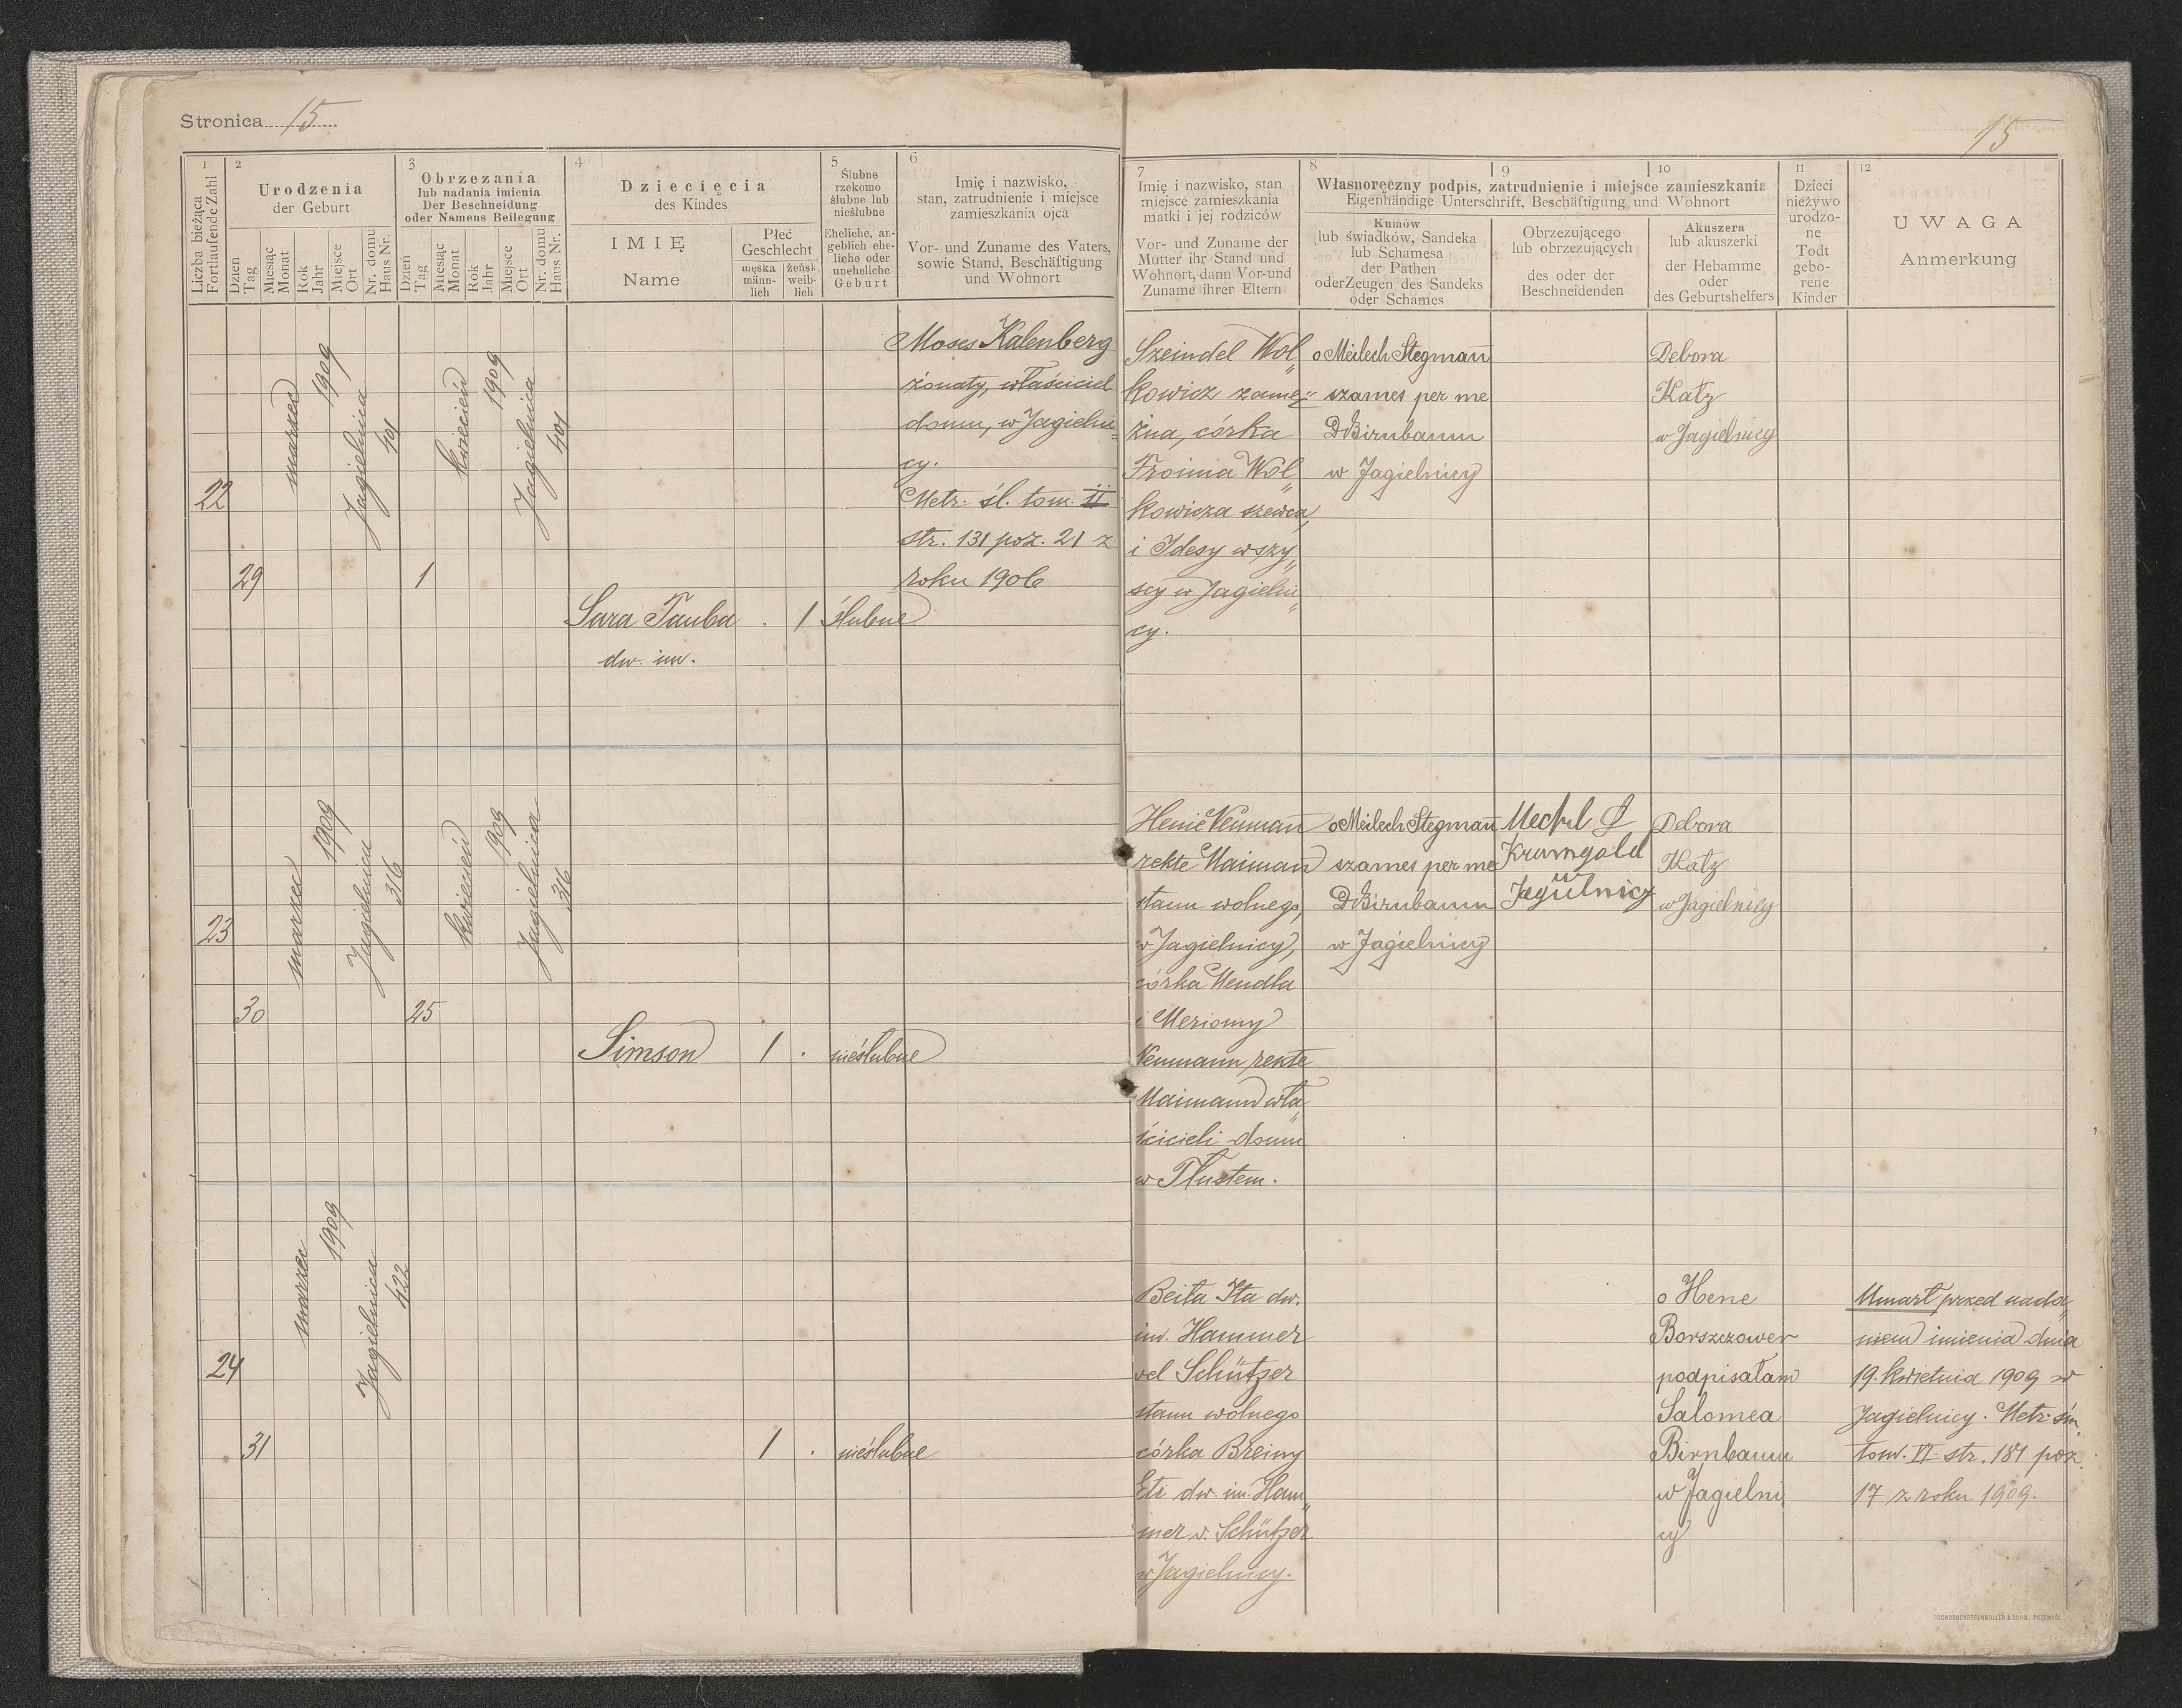 Stronica 15
15
1
2
3
4
5
6
7
8
9
10
11
12
Liczba bieżąca
Fortlaufende Zahl
Urodzenia
der Geburt
Dzień
Tag
Miesiąc
Monat
Rok
Jahr
Miejsce
Ort
Nr. domu
Haus Nr.
Obrzezania
lub nadania imienia
Der Beschneidung
oder Namens Beilegung
Dzień
Tag
Miesiąc
Monat
Rok
Jahr
Miejsce
Ort
Nr. domu
Haus Nr.
Dziecięcia
des Kindes
IMIĘ
Name
Płeć
Geschlecht
męska
männ-
lich
żeńsk
weib-
lich
Ślubne
rzekomo
ślubne lub
nieślubne
Eheliche, an-
geblich ehe-
liche oder
uneheliche
Geburt
Imię i nazwisko,
stan, zatrudnienie i miejsce
zamieszkania ojca
Vor- und Zuname des Vaters,
sowie Stand, Beschäftigung
und Wohnort
Imię i nazwisko, stan
miejsce zamieszkania
matki i jej rodziców
Vor- und Zuname der
Mutter ihr Stand und
Wohnort, dann Vor-und
Zuname ihrer Eltern
Własnoręczny podpis, zatrudnienie i miejsce zamieszkania
Eigenhändige Unterschrift, Beschäftigung und Wohnort
Kumów
lub świadków, Sandeka
lub Schamesa
der Pathen
oder Zeugen des Sandeks
oder Schames
Obrzezującego
lub obrzezujących
des oder der
Beschneidenden
Akuszera
lub akuszerki
der Hebamme
oder
des Geburtshelfers
Dzieci
nieżywo
urodzo-
ne
Todt
gebo-
rene
Kinder
UWAGA
Anmerkung
22
29
marzec
1909
Jagielnica
401
1
kwiecień
1909
Jagielnica
401
Sara Tauba
dw. im.
. 1
ślubne
Moses Kalenberg
żonaty, właściciel
domu, w Jagielni=
cy.
Metr. śl. tom. II
str. 131 poz. 21 z
roku 1906
Szeindel Wol„
kowicz zamę=
żna, córka
Froima Wol„
kowicza szewca
i Idesy wszy„
scy w Jagielni„
cy.
o Meilech Stegman
szames per me
D Birnbaum
w Jagielnicy
Debora
Katz
w Jagielnicy
23
30
marzec
1909
Jagielnica
316
25
kwiecień
1909
Jagielnica
316
Simson
1 .
nieślubne
Henie Neuman
rekte Maiman
stanu wolnego,
w Jagielnicy,
córka Mendla
i Meriomy
Neumann rekte
Maimann wła„
ścicieli domu
w Tłustem.
o Meilech Stegman
szames per me
D Birnbaum
w Jagielnicy
Mechel
Krumgold
w
Jagielnicy
Debora
Katz
w Jagielnicy
24
31
marzec
1909
Jagielnica
422
1 .
nieślubne
Beila Ita dw.
im. Hammer
vel Schützer
stanu wolnego
córka Breiny
Eti dw. im. Ham„
mer v. Schützer
w Jagielnicy.
o Hene
Borszczower
podpisałam
Salomea
Birnbaum
w Jagielni„
cy
Umarł przed nada„
niem imienia dnia
19. kwietnia 1909 w
Jagielnicy. Metr. śm.
tom. VI str. 181 poz.
17 z roku 1909.
BUCHDRUCKEREI KNOLLER & SOHN, PRZEMYŚL